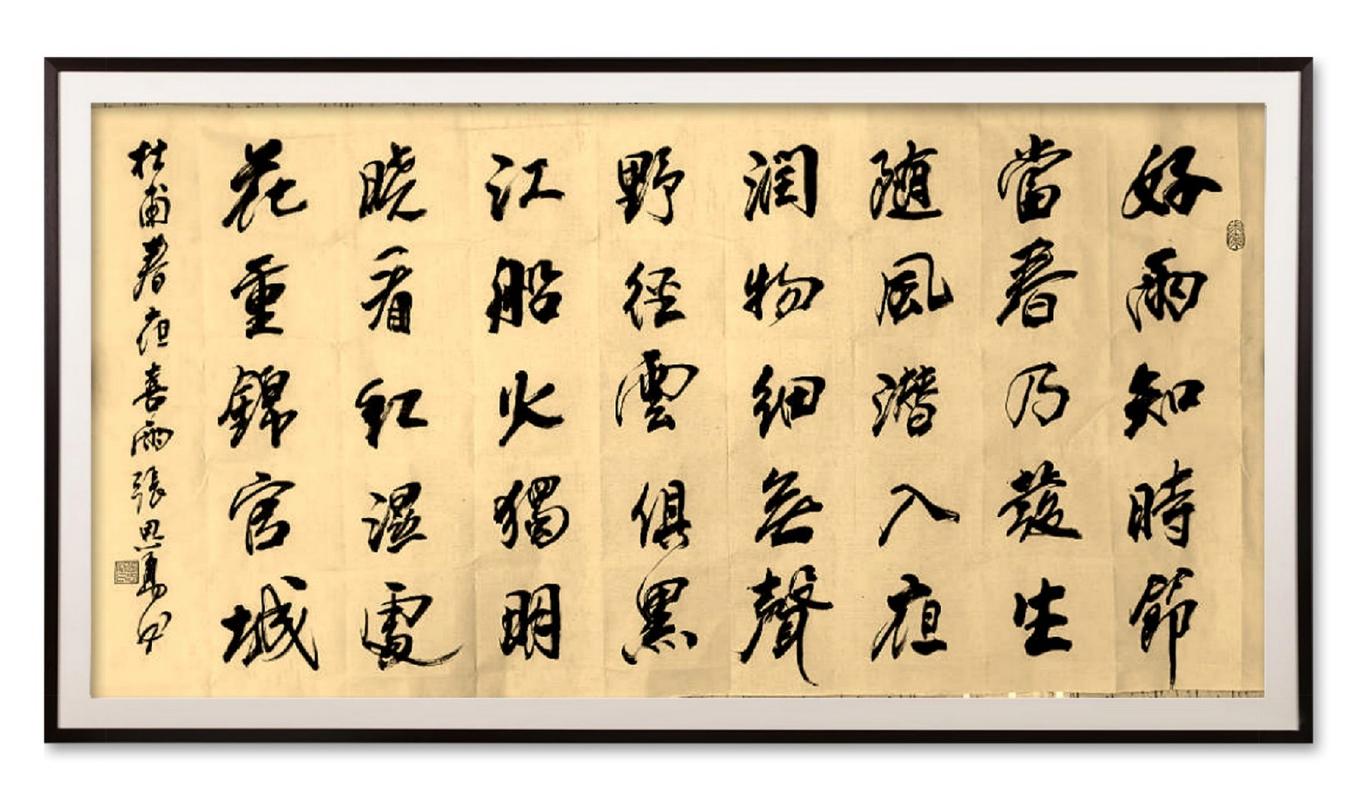 好雨知時節
當春乃發生
随風潜入夜
润物细無聲
野径雲俱黑
江船火獨明
晓看红湿處
花重錦官城
杜甫春夜喜雨張思书